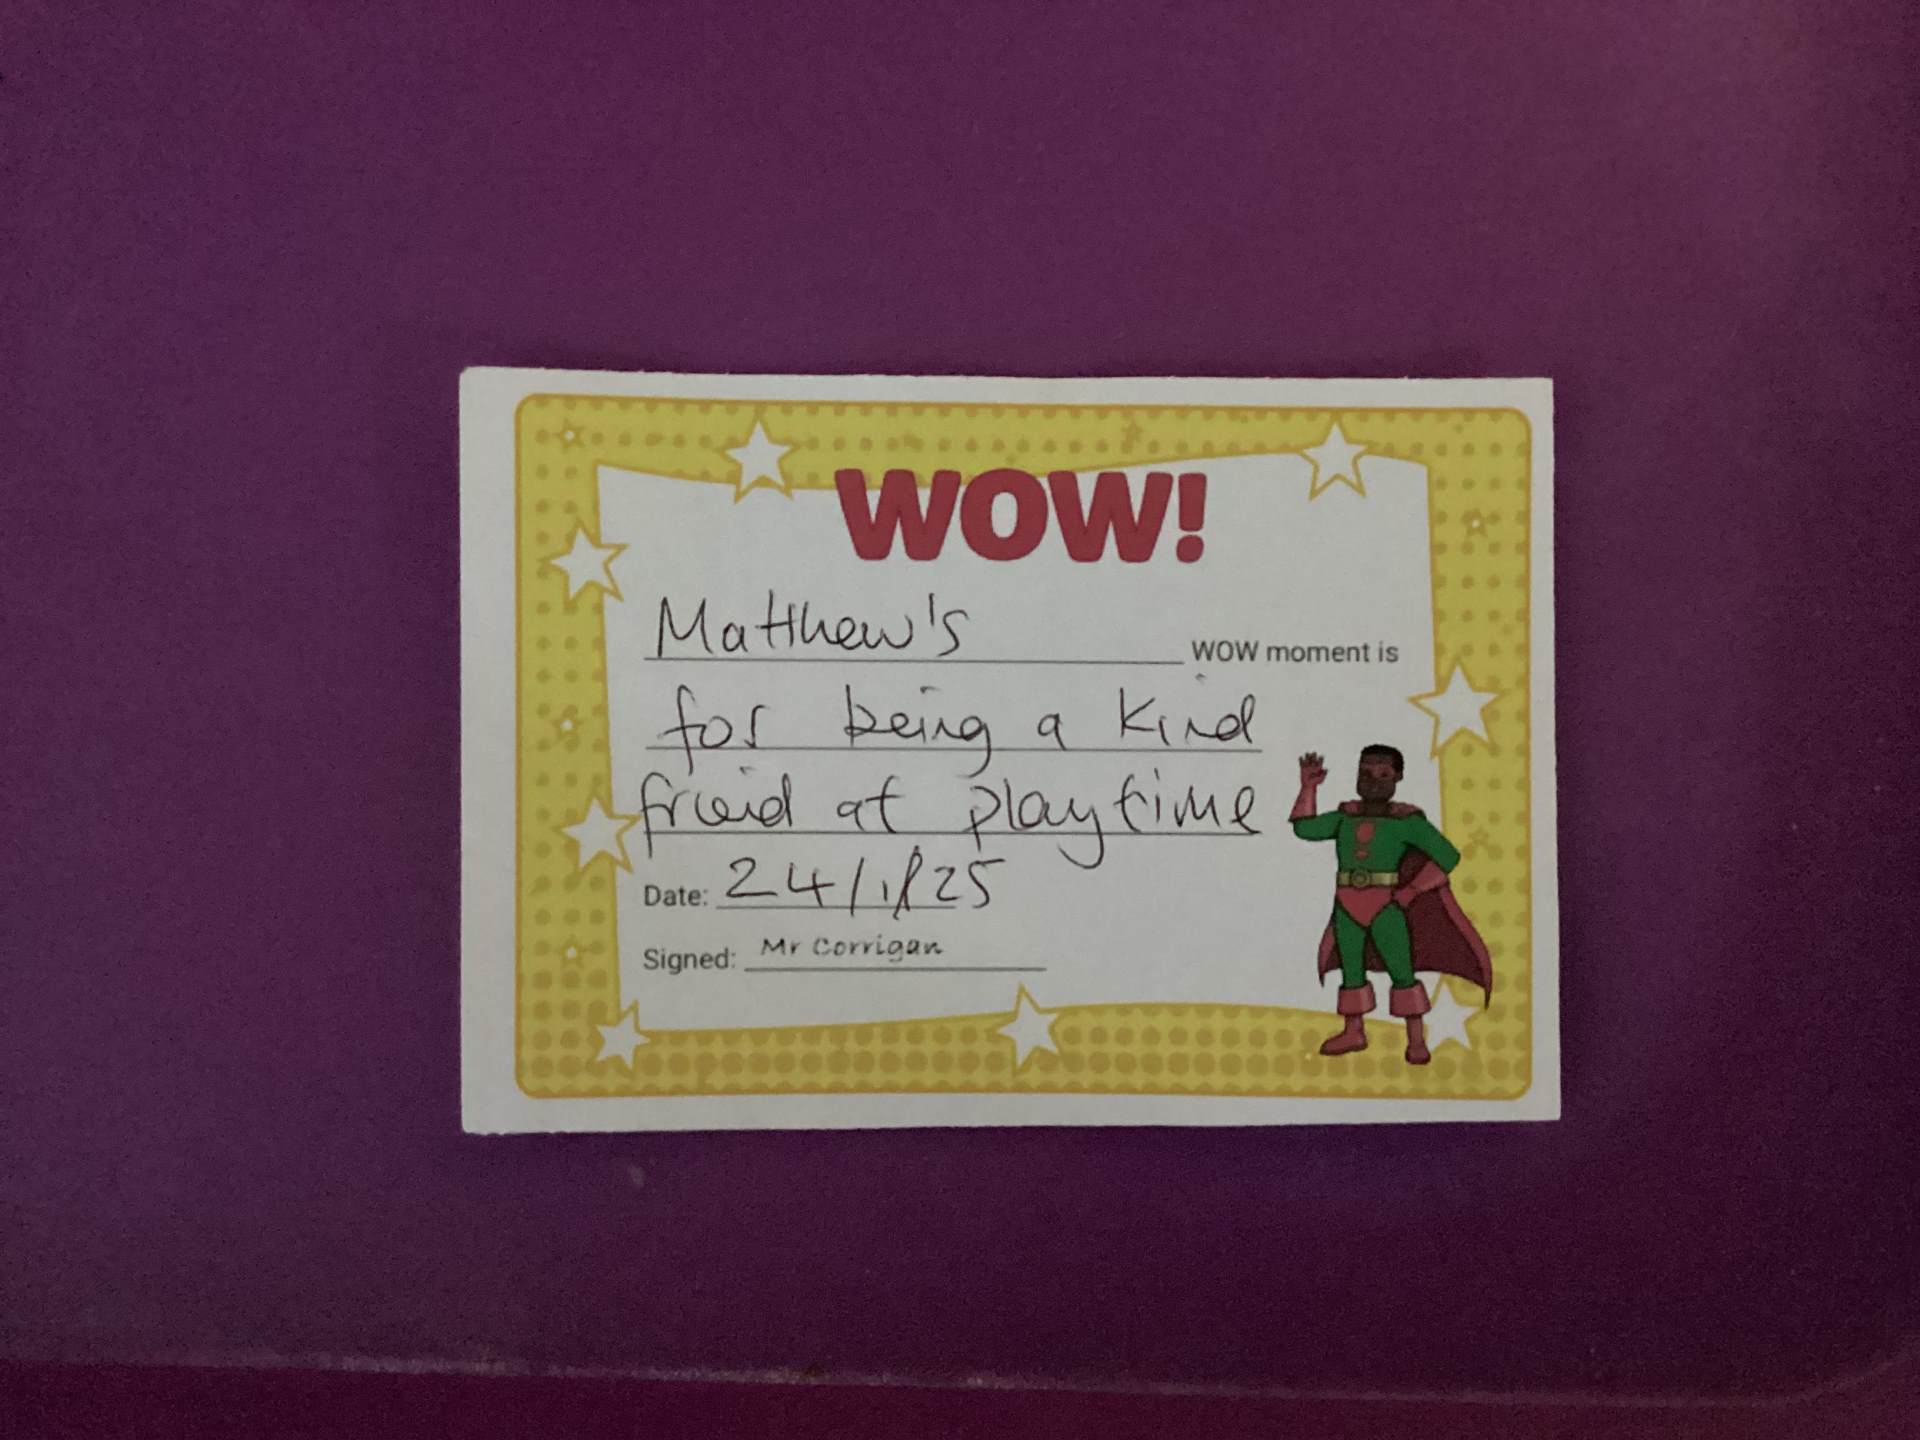 WOW!
Matthew's WOW moment is
for being a kind
friend at playtime
Date: 24/1/25
Signed: Mr Corrigan